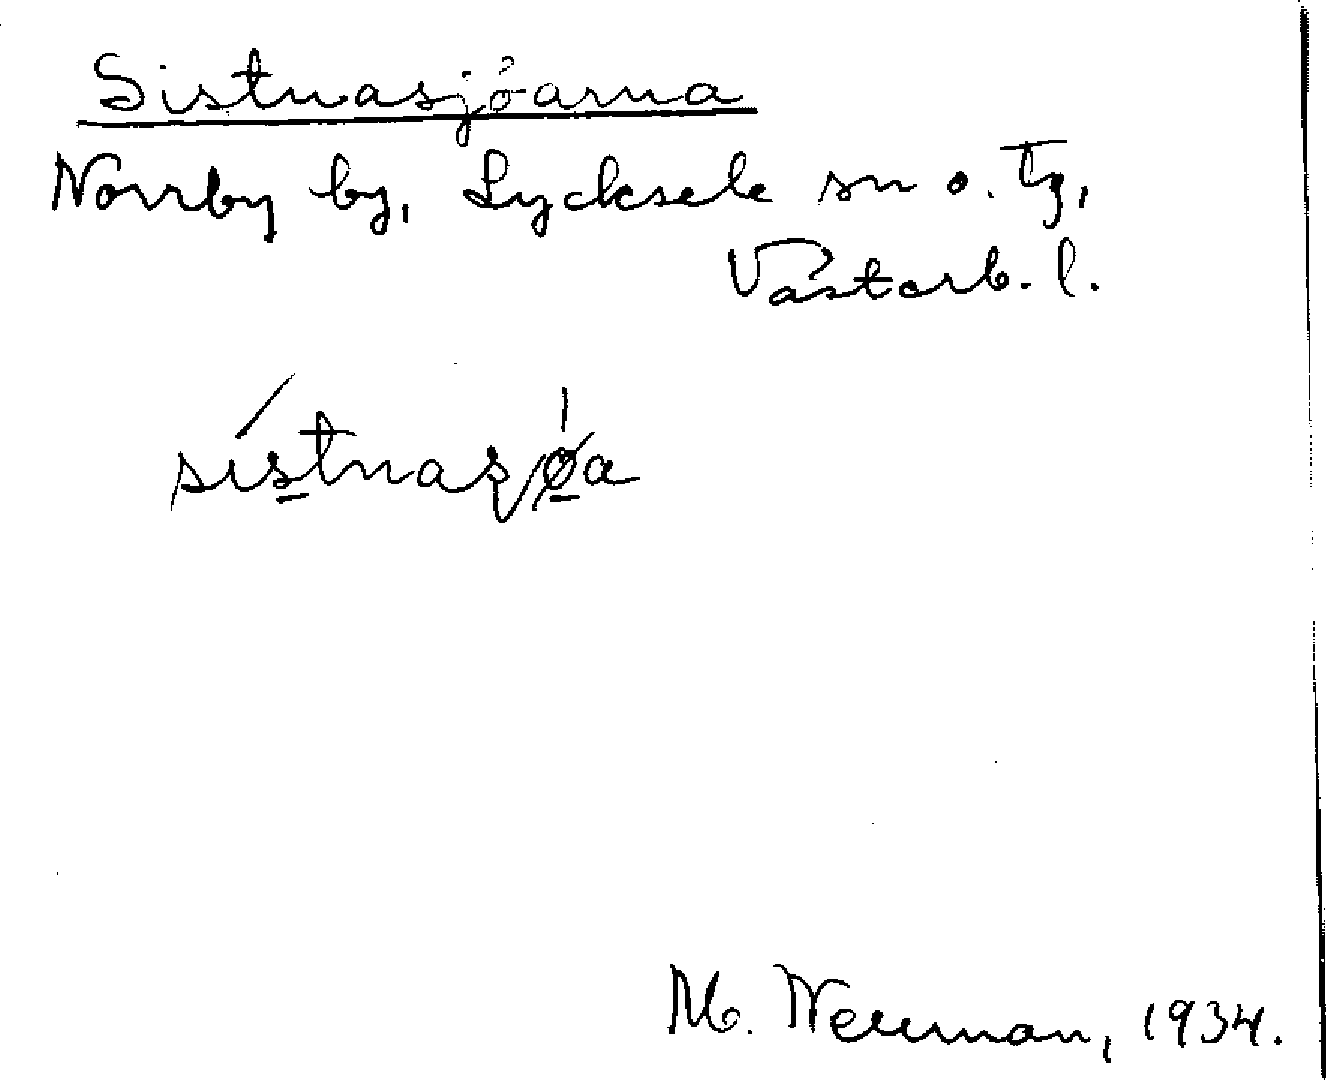 Sistnasjöarna
Norrby by, Lycksele sn o. tg,
Västerb. l.
sistnasjøa
M. Neuman, 1934.